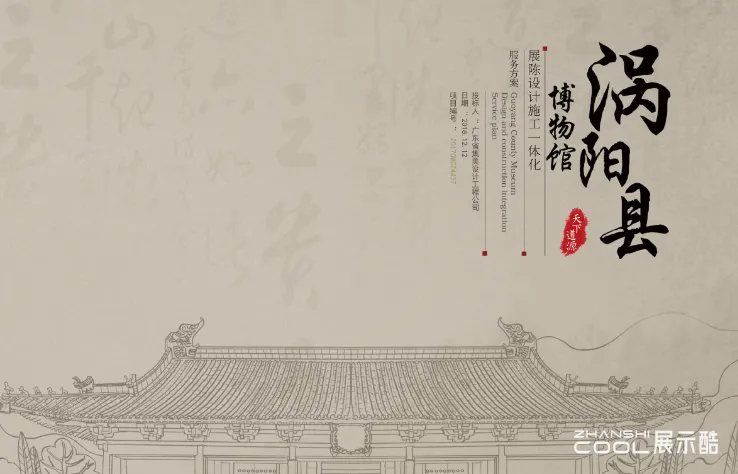 涡阳县
博物馆
天下道源
展陈设计施工一体化
服务方案
Guoyang County Museum
Design and construction Integration
Service plan
投标人：广东省集美设计工程公司
日期：2018.12.12
项目编号：
ZHANSHI
COOL 展示酷